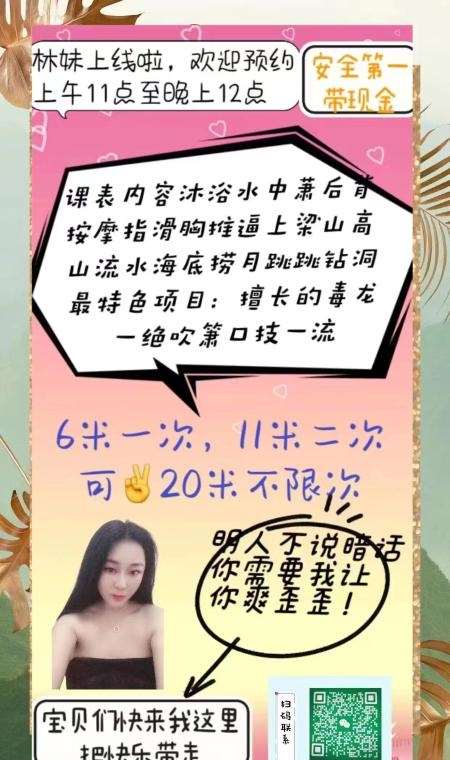 林妹上线啦，欢迎预约
上午11点至晚上12点
安全第一
带现金
课表内容沐浴水中萧后背
按摩指滑胸推逼上梁山高
山流水海底捞月跳跳钻洞
最特色项目：擅长的毒龙
一绝吹箫口技一流
6米一次，11米二次
可✌20米不限次
明人不说暗话
你需要我让
你爽歪歪！
宝贝们快来我这里
把快乐带走
扫码联系